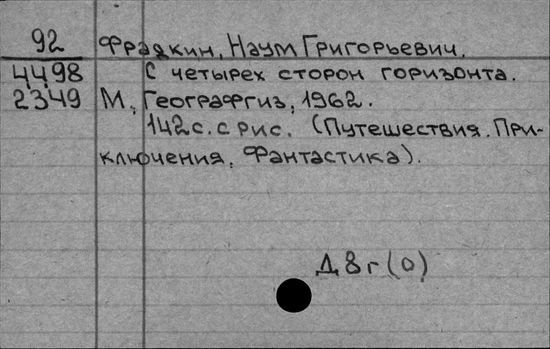 92 Фрадкин, Наум Григорьевич.
4498 С четырех сторон горизонта.
2349 М., Географгиз, 1962.
142 с. с рис. (Путешествия. При-
ключения. Фантастика).
Д 8 г (0)